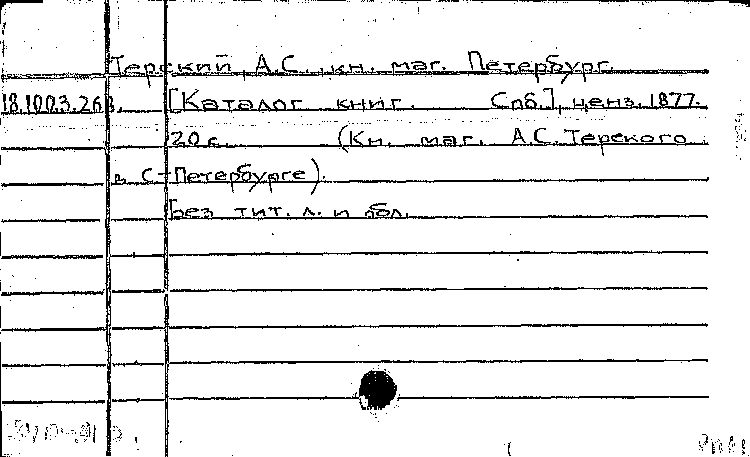 Терский, А.С., кн. маг. Петербург.
18.100.3.263. [Каталог книг. Спб.], ценз. 1877.
20 с. (Кн. маг. А.С. Терского
в С-Петербурге).
Без тит. л. и обл.